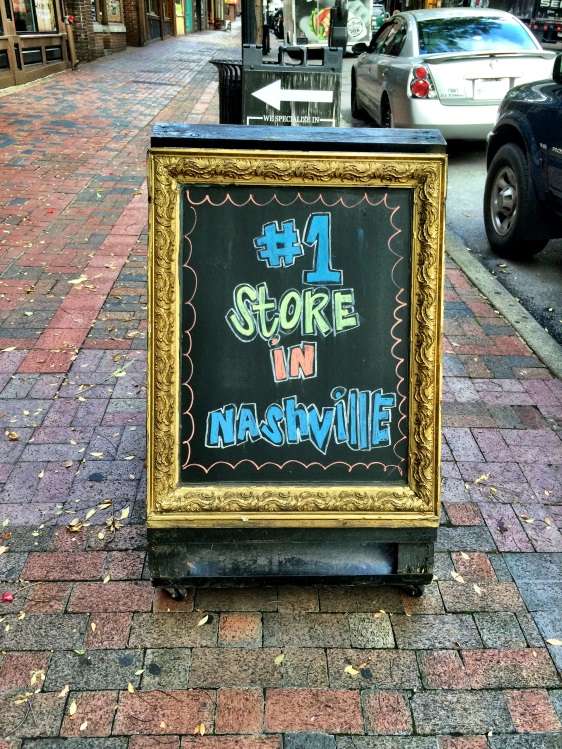 WE SPECIALIZE IN
#1
StORE
iN
NAshville